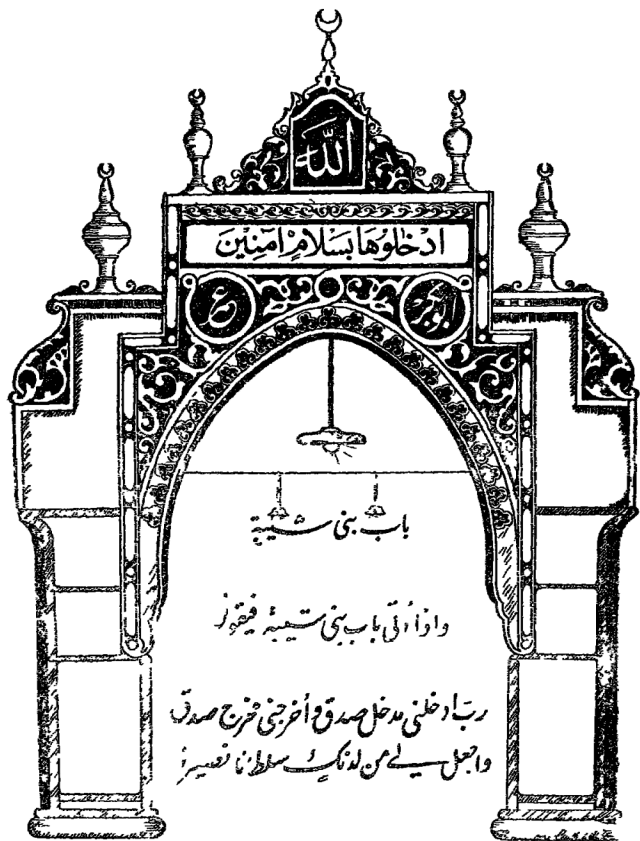 الله
ادْخُلُوهَا بِسَلَامٍ آمِنِينَ
ابوبكر
عمر
باب بنى شيبة
واذا أتى باب بنى شيبة فيقول
ربّ ادخلنى مدخل صدق وأخرجنى مخرج صدق
واجعل لى من لدنك سلطانا نصيرا